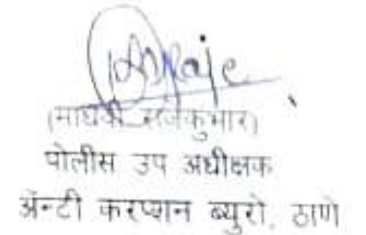 (माधवी राजेकुमार)
पोलीस उप अधीक्षक
ॲन्टी करप्शन ब्युरो, ठाणे